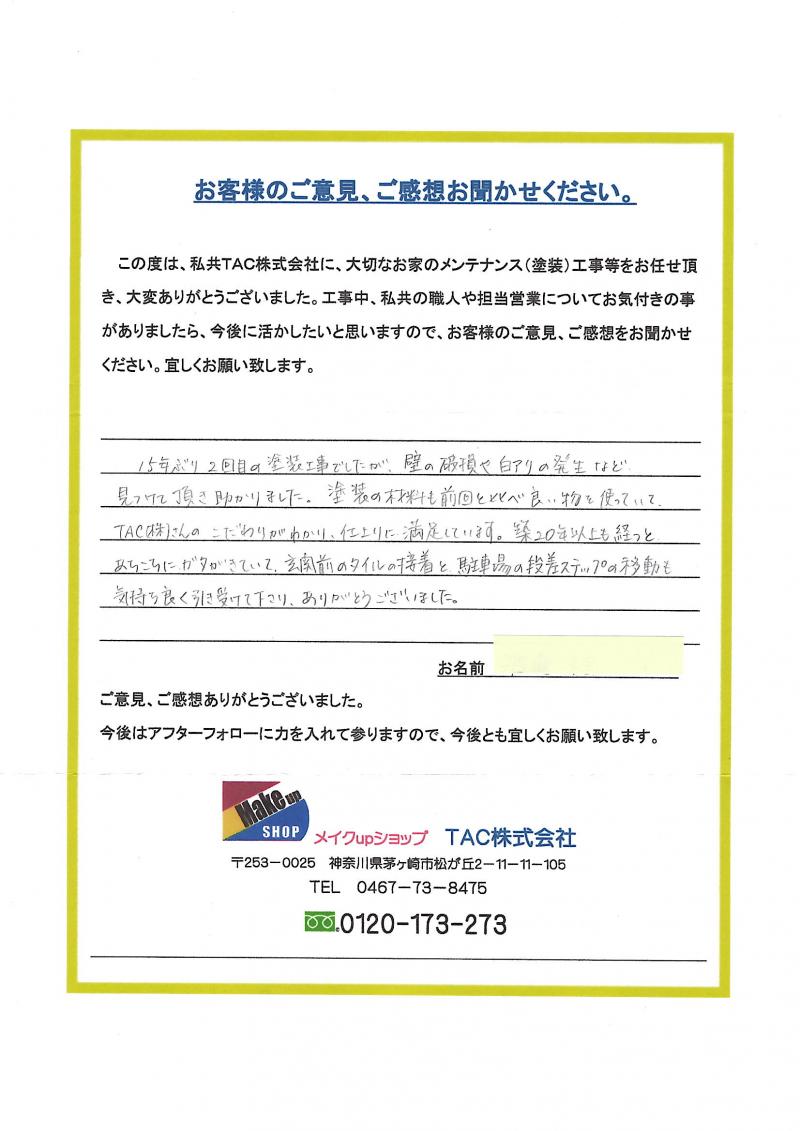 お客様のご意見、ご感想お聞かせください。
この度は、私共TAC株式会社に、大切なお家のメンテナンス(塗装)工事等をお任せ頂
き、大変ありがとうございました。工事中、私共の職人や担当営業についてお気付きの事
がありましたら、今後に活かしたいと思いますので、お客様のご意見、ご感想をお聞かせ
ください。宜しくお願い致します。
15年ぶり2回目の塗装工事でしたが、壁の破損や白アリの発生など
見つけて頂き助かりました。塗装の材料も前回とくらべ良い物を使っていて、
TAC(株)さんのこだわりがわかり、仕上りに満足しています。築20年以上も経つと
あちこちにガタがきていて、玄関前のタイルの接着と、駐車場の段差ステップの移動も
気持ち良く引き受けて下さり、ありがとうございました。
お名前
ご意見、ご感想ありがとうございました。
今後はアフターフォローに力を入れて参りますので、今後とも宜しくお願い致します。
Make up
SHOP
メイクupショップ TAC株式会社
〒253-0025 神奈川県茅ヶ崎市松が丘2-11-11-105
TEL 0467-73-8475
0120-173-273